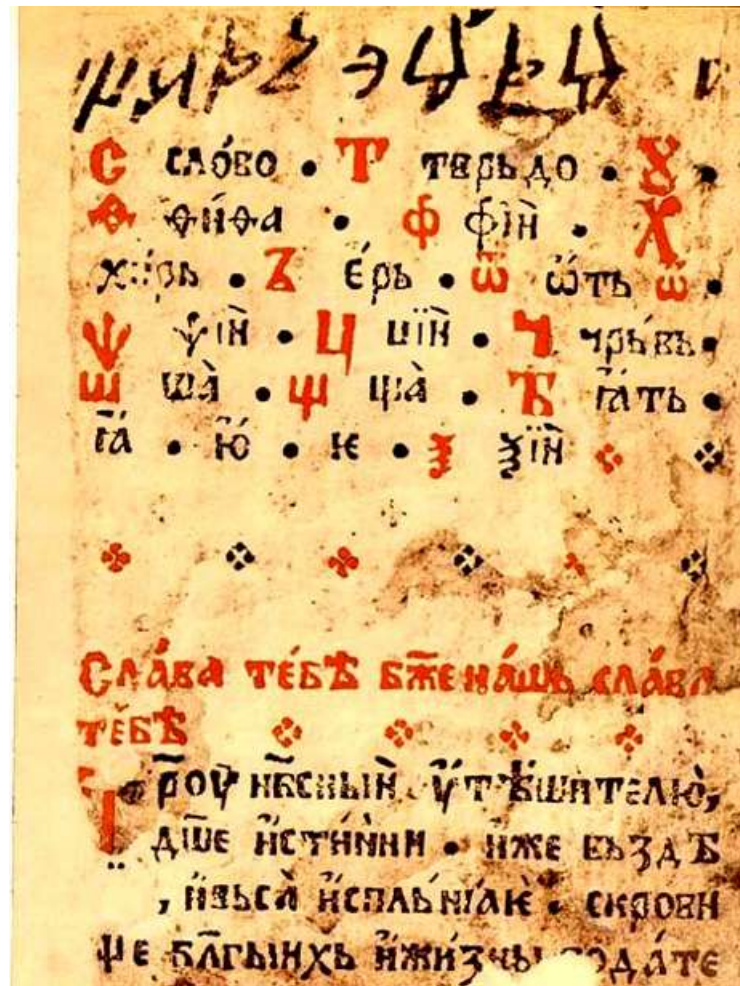 С сло́во • Т терьдо • Ꙋ •
Ѳ ѳи́ѳа • ф фїѝ • Х
хи́рь • Ъ е́рь • ѿ ѿть ѿ •
Ѱ ѱїѝ • Ц цїѝ • Ч чрь́въ •
Ш ша̀ • Щ ща̀ • Ѣ ꙗ҆́ть •
ꙗ҆̀ • ю҆̀ • ѥ • ѯ ѯїѝ
Сла́ва те́бѣ бж҃е на́шь сла́ва
те́бѣ
Ц р҃оу нб҃сныѝ ᲂу҆тѣшителю̀,
дш҃е и҆́сти́нни • и҆́же въздѣ
, и҆вьса̀ и҆спль́нꙗѥ̀ • скрови
ще бл҃гыихь и҆жи́зны подате